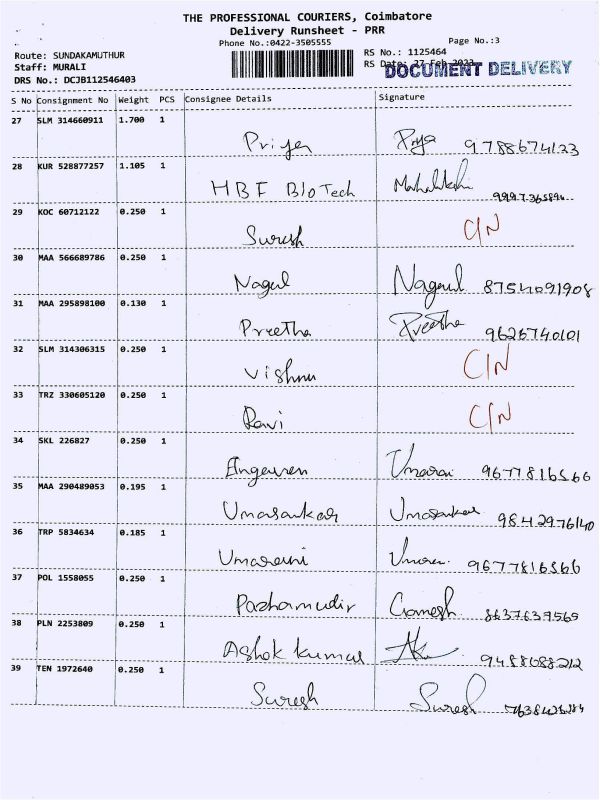 THE PROFESSIONAL COURIERS, Coimbatore
Delivery Runsheet - PRR
Phone No.:0422-3505555 Page No.:3
Route: SUNDAKAMUTHUR RS No.: 1125464
Staff: MURALI RS Date: 27 Feb 2023
DRS No.: DCJB112546403 DOCUMENT DELIVERY
S No Consignment No Weight PCS Consignee Details Signature
27 SLM 314660911 1.700 1
Priya Priya 9788674123
28 KUR 528877257 1.105 1
HBF BIOTech Mahalakshmi
29 KOC 60712122 0.250 1
Suresh C/N
30 MAA 566689786 0.250 1
Nagul Nagul 8754091908
31 MAA 295898100 0.130 1
Preetha Preetha 9626740101
32 SLM 314306315 0.250 1
Vishnu C/N
33 TRZ 330605120 0.250 1
Ravi C/N
34 SKL 226827 0.250 1
9677816566
35 MAA 290489053 0.195 1
Umasankar Umasankar 9842976140
36 TRP 5834634 0.185 1
Umarani 9677816566
37 POL 1558055 0.250 1
Pazhamudir Ganesh 8637637565
38 PLN 2253809 0.250 1
Ashok kumar 9488088212
39 TEN 1972640 0.250 1
Suresh Suresh